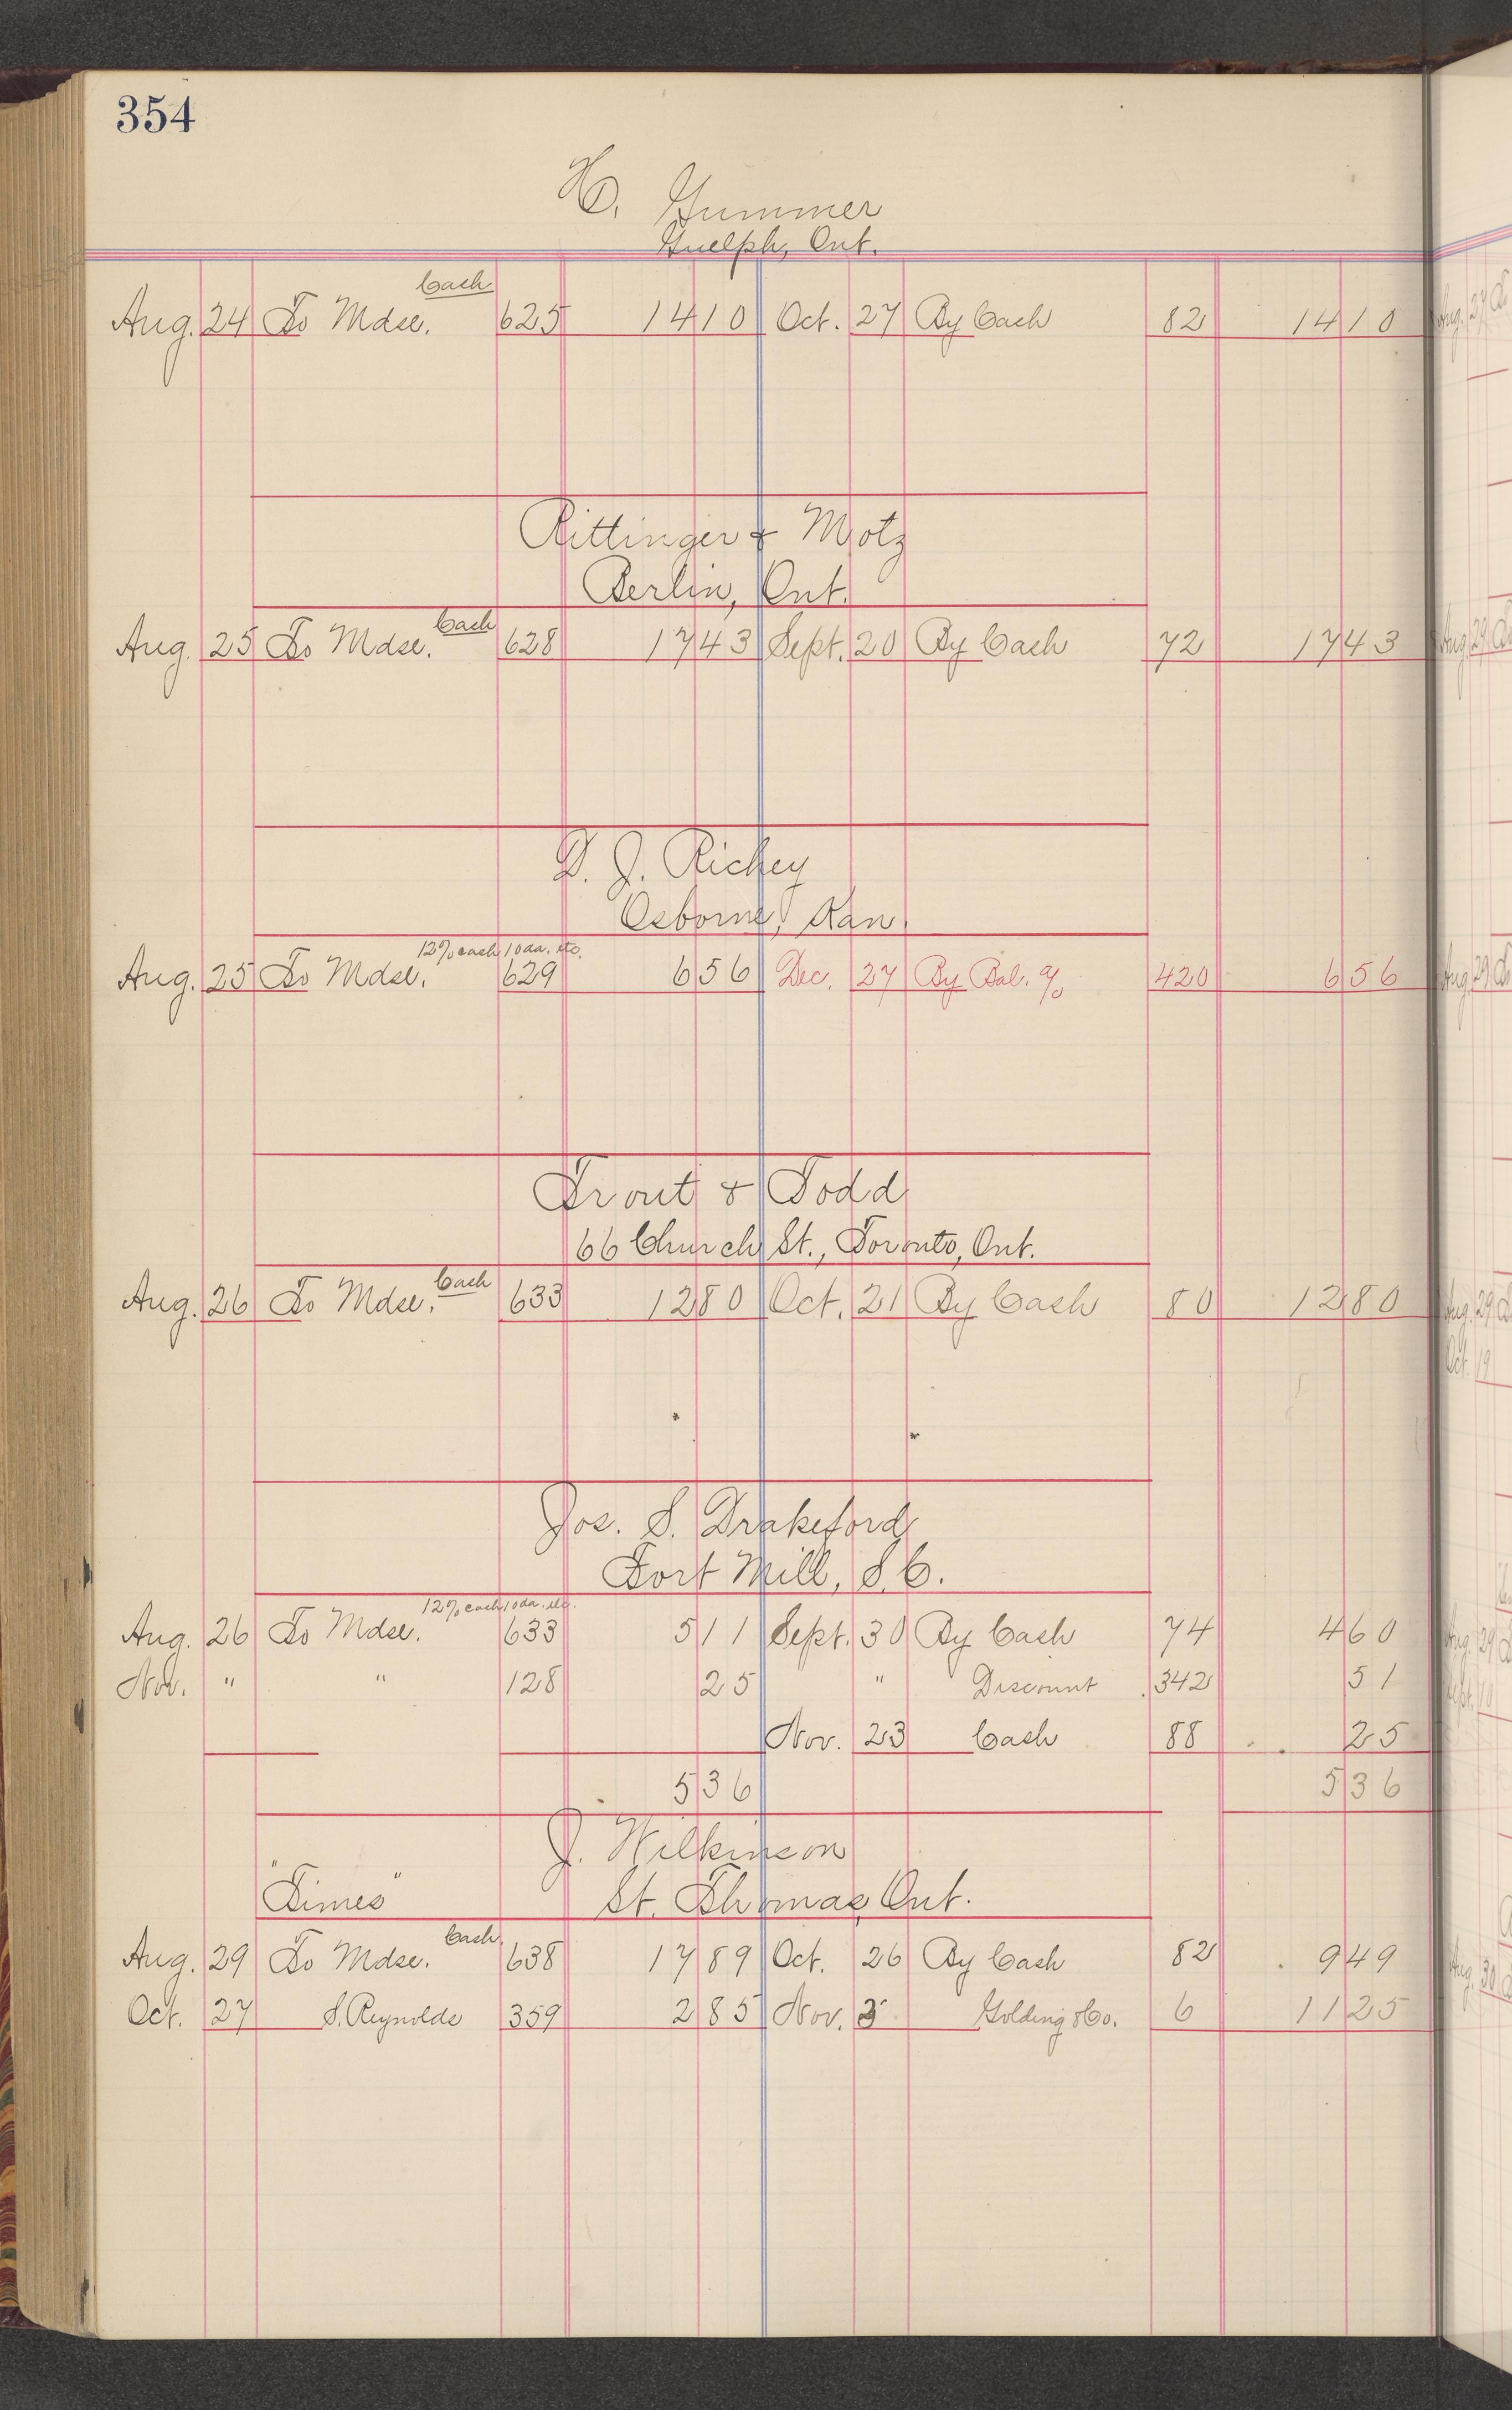 354
H. Gummer
Guelph, Ont.
Cash
Aug. 24 To Mdse. 625 14 10 Oct. 27 By Cash 82 14 10
Rittinger & Motz
Berlin, Ont.
Cash
Aug. 25 To Mdse. 628 17 43 Sept. 20 By Cash 72 17 43
D. J. Richey
Osborne, Kan.
12% cash 10 da. etc.
Aug. 25 To Mdse. 629 6 56 Dec. 27 By Bal. a/c 420 6 56
Trout & Todd
66 Church St., Toronto, Ont.
Cash
Aug. 26 To Mdse. 633 12 80 Oct. 21 By Cash 80 12 80
Jos. S. Drakeford
Fort Mill, S.C.
12% cash 10 da. etc.
Aug. 26 To Mdse. 633 5 11 Sept. 30 By Cash 74 4 60
Nov. " " 128 25 " Discount 342 51
Nov. 23 Cash 88 25
5 36 5 36
J. Wilkinson
"Times" St. Thomas, Ont.
Cash
Aug. 29 To Mdse. 638 17 89 Oct. 26 By Cash 82 9 49
Oct. 27 S. Reynolds 359 2 85 Nov. Golding & Co. 6 11 25